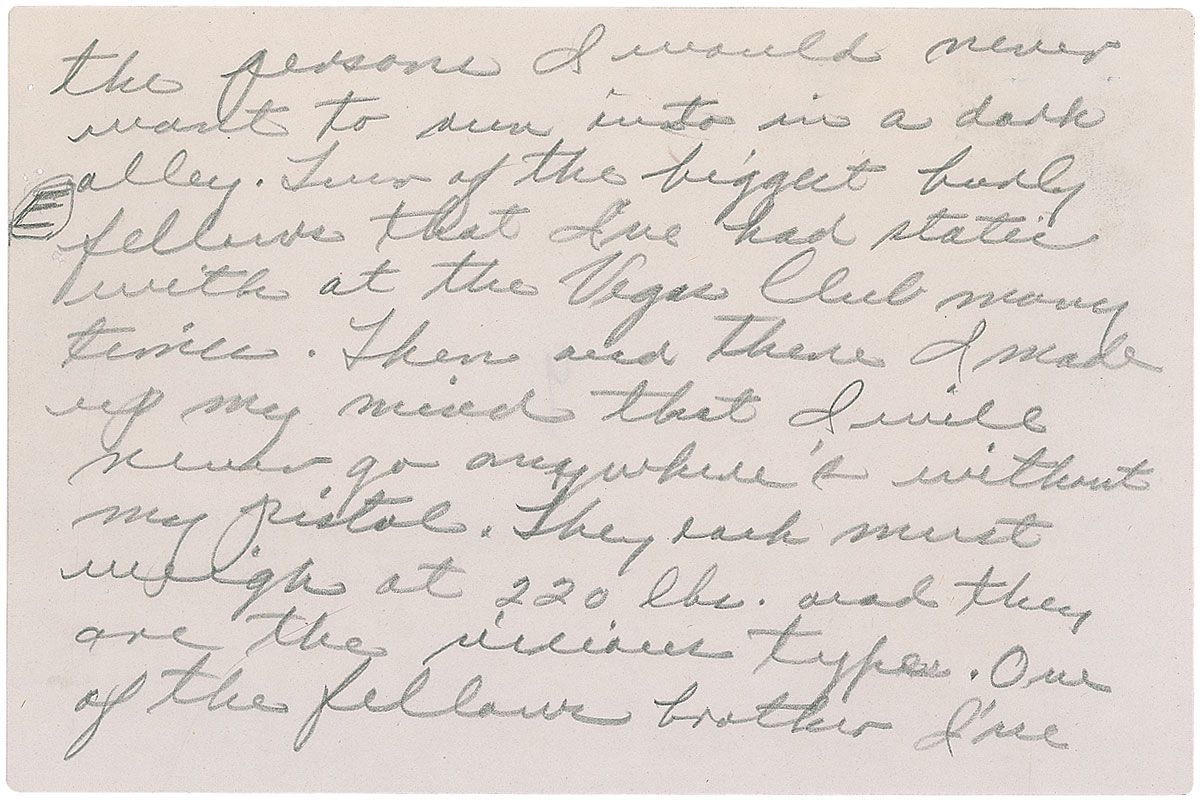 the persons I would never
want to run into in a dark
alley. Two of the biggest burly
E
fellows that I've had static
with at the Vegas Club many
times. Then and there I made
up my mind that I will
never go anywhere's without
my pistol. They each must
weigh at 220 lbs. and they
are the vicious type. One
of the fellows brother I've